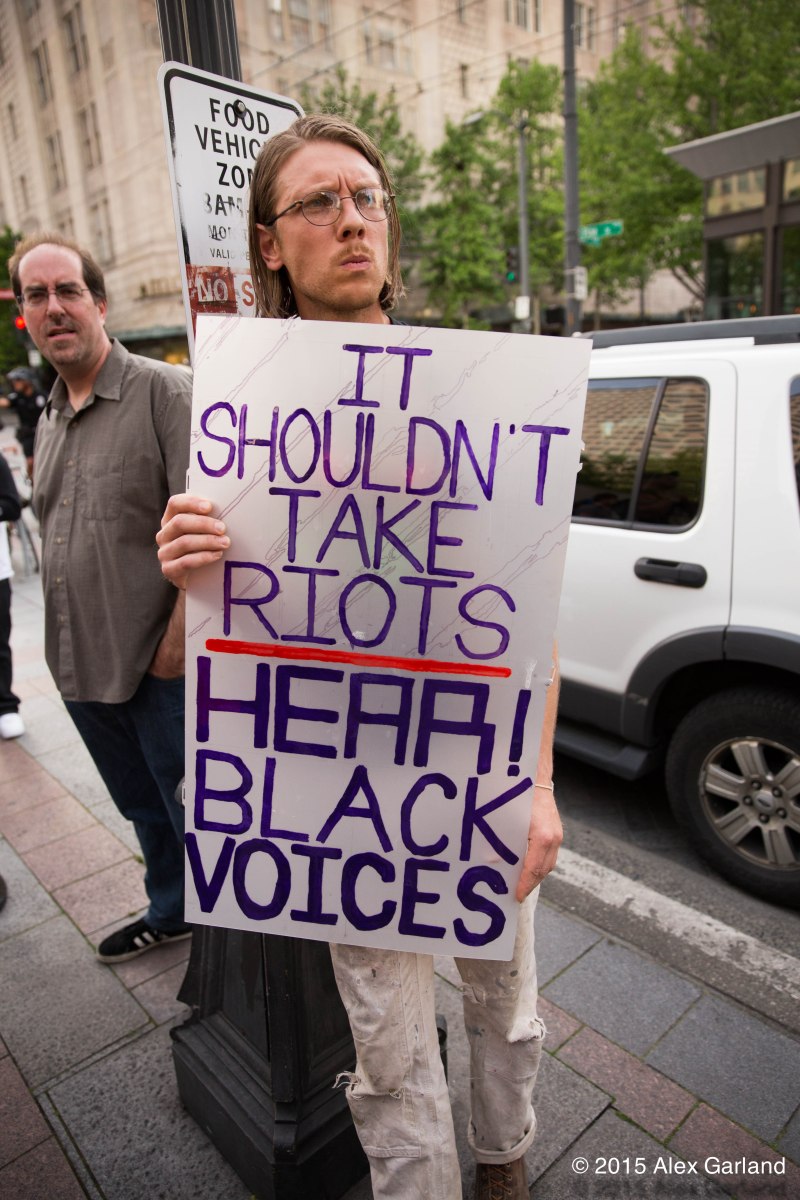 FOOD
VEHIC
ZO
8AM
MO
VALI
NO S
IT
SHOULDN'T
TAKE
RIOTS
HEAR!
BLACK
VOICES
© 2015 Alex Garland